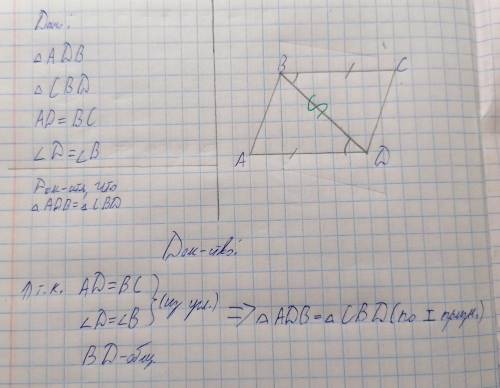 Дано:
△ADB
△CBD
AD=BC
∠D=∠B
Док-ть, что
△ADB=△CBD
B
C
A
D
Док-тво:
1) т.к. AD=BC
∠D=∠B
} (из усл.)
BD-общ
=> △ADB=△CBD (по I призн.)